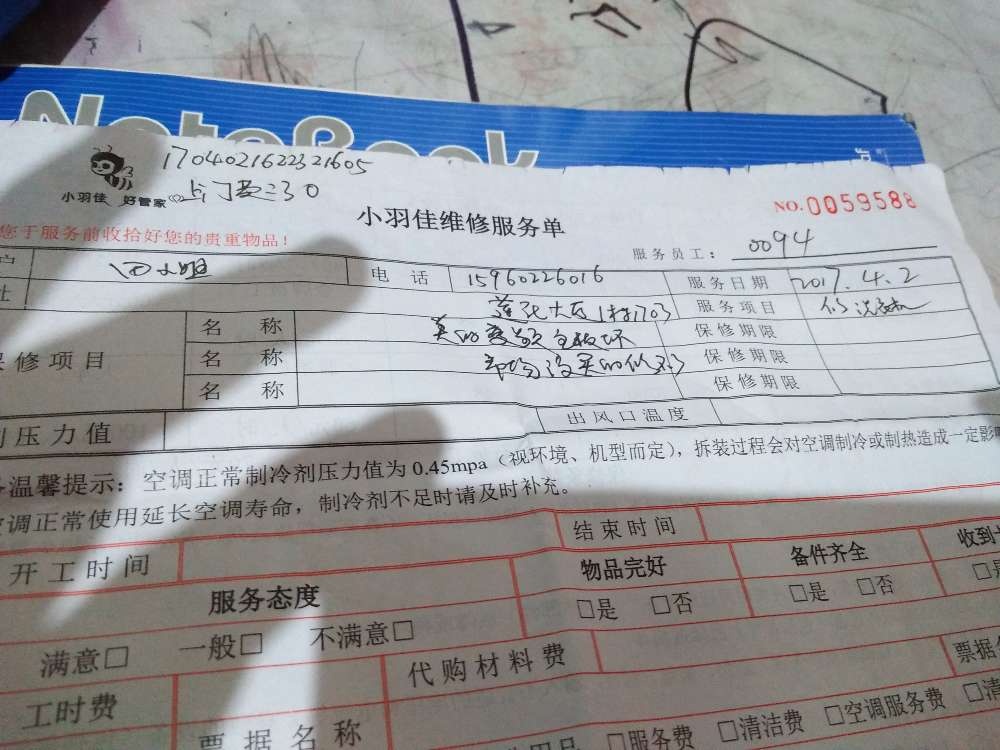 NoteBook
1704021622321605
小羽佳 好管家
上门费：30
小羽佳维修服务单
NO.0059588
您于服务前收拾好您的贵重物品！
服务员工：0094
户 田小姐 电话 15960226016 服务日期 2017.4.2
址 服务项目
保修项目 名称 保修期限
名称 保修期限
名称 保修期限
剂压力值 出风口温度
温馨提示：空调正常制冷剂压力值为0.45mpa（视环境、机型而定），拆装过程会对空调制冷或制热造成一定影
空调正常使用延长空调寿命，制冷剂不足时请及时补充。
开工时间 结束时间
服务态度 物品完好 备件齐全 收到
□是 □否 □是 □否
满意□ 一般□ 不满意□
工时费 代购材料费 票据
票据名称 □服务费 □清洁费 □空调服务费 □清